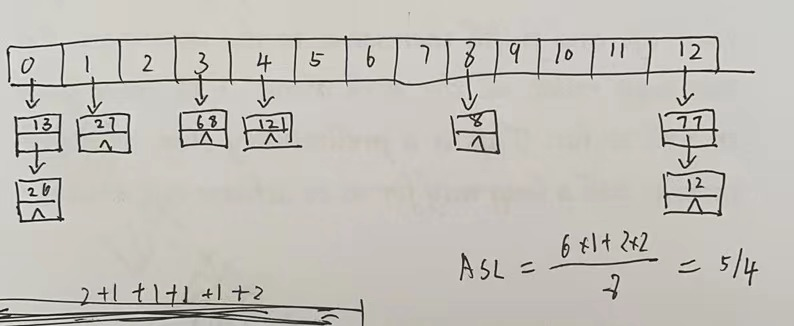 0 1 2 3 4 5 6 7 8 9 10 11 12
13 27 68 121 8 77
^ ^ ^ ^
26 12
^ ^
ASL = 6×1+2×2 / 8 = 5/4
2+1+1+1+1+2